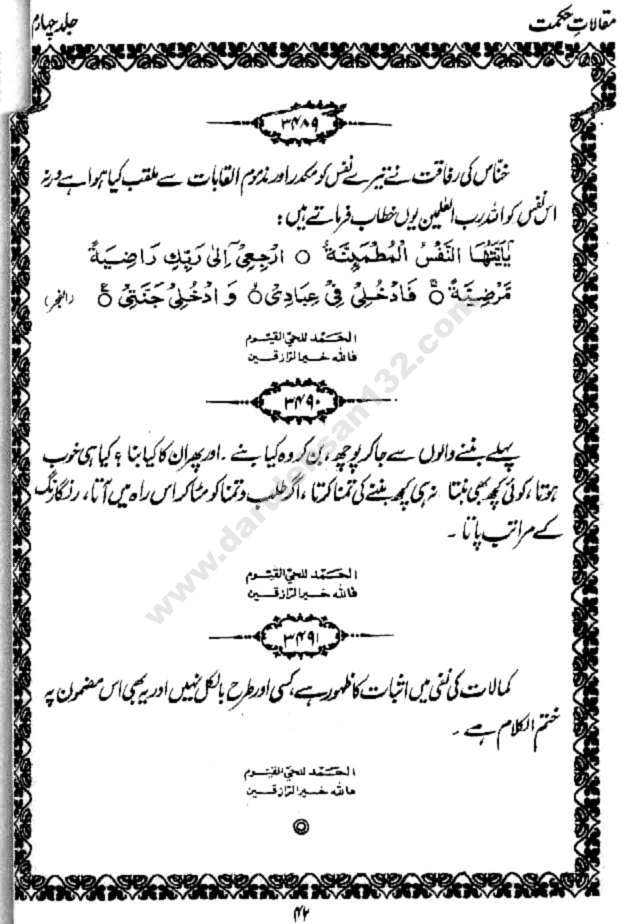 مقالاتِ حکمت
جلد چہارم
۳۴۸۹
خنّاس کی رفاقت نے تیرے نفس کو مکدر اور مذموم القابات سے ملقب کیا ہوا ہے ورنہ
اس نفس کو اللہ رب العٰلمین یوں خطاب فرماتے ہیں :
يٰۤاَيَّتُهَا النَّفْسُ الْمُطْمَئِنَّةُ ○ ارْجِعِيْۤ اِلٰى رَبِّكِ رَاضِيَةً
مَّرْضِيَّةً ○ فَادْخُلِيْ فِيْ عِبَادِيْ ○ وَ ادْخُلِيْ جَنَّتِيْ ○ (الفجر)
الحَمد للحیّ القیّوم
فالله خیر الرّازقین
۳۴۹۰
پہلے بننے والوں سے جا کر پوچھ، بن کر وہ کیا بنے ۔ اور پھر ان کا کیا بنا ؟ کیا ہی خوب
ہوتا، کوئی کچھ بھی نہ بنتا نہ ہی کچھ بننے کی تمنا کرتا، اگر طلب و تمنا کو مٹا کر اس راہ میں آتا،
کے مراتب پاتا ۔
الحَمد للحیّ القیّوم
فالله خیر الرّازقین
۳۴۹۱
کمالات کی نفی میں اثبات کا ظہور ہے، کسی اور طرح بالکل نہیں اور یہ بھی اس مضمون پہ
ختم الکلام ہے ۔
الحَمد للحیّ القیّوم
فالله خیر الرّازقین
۴۲
www.darulehsan132.com